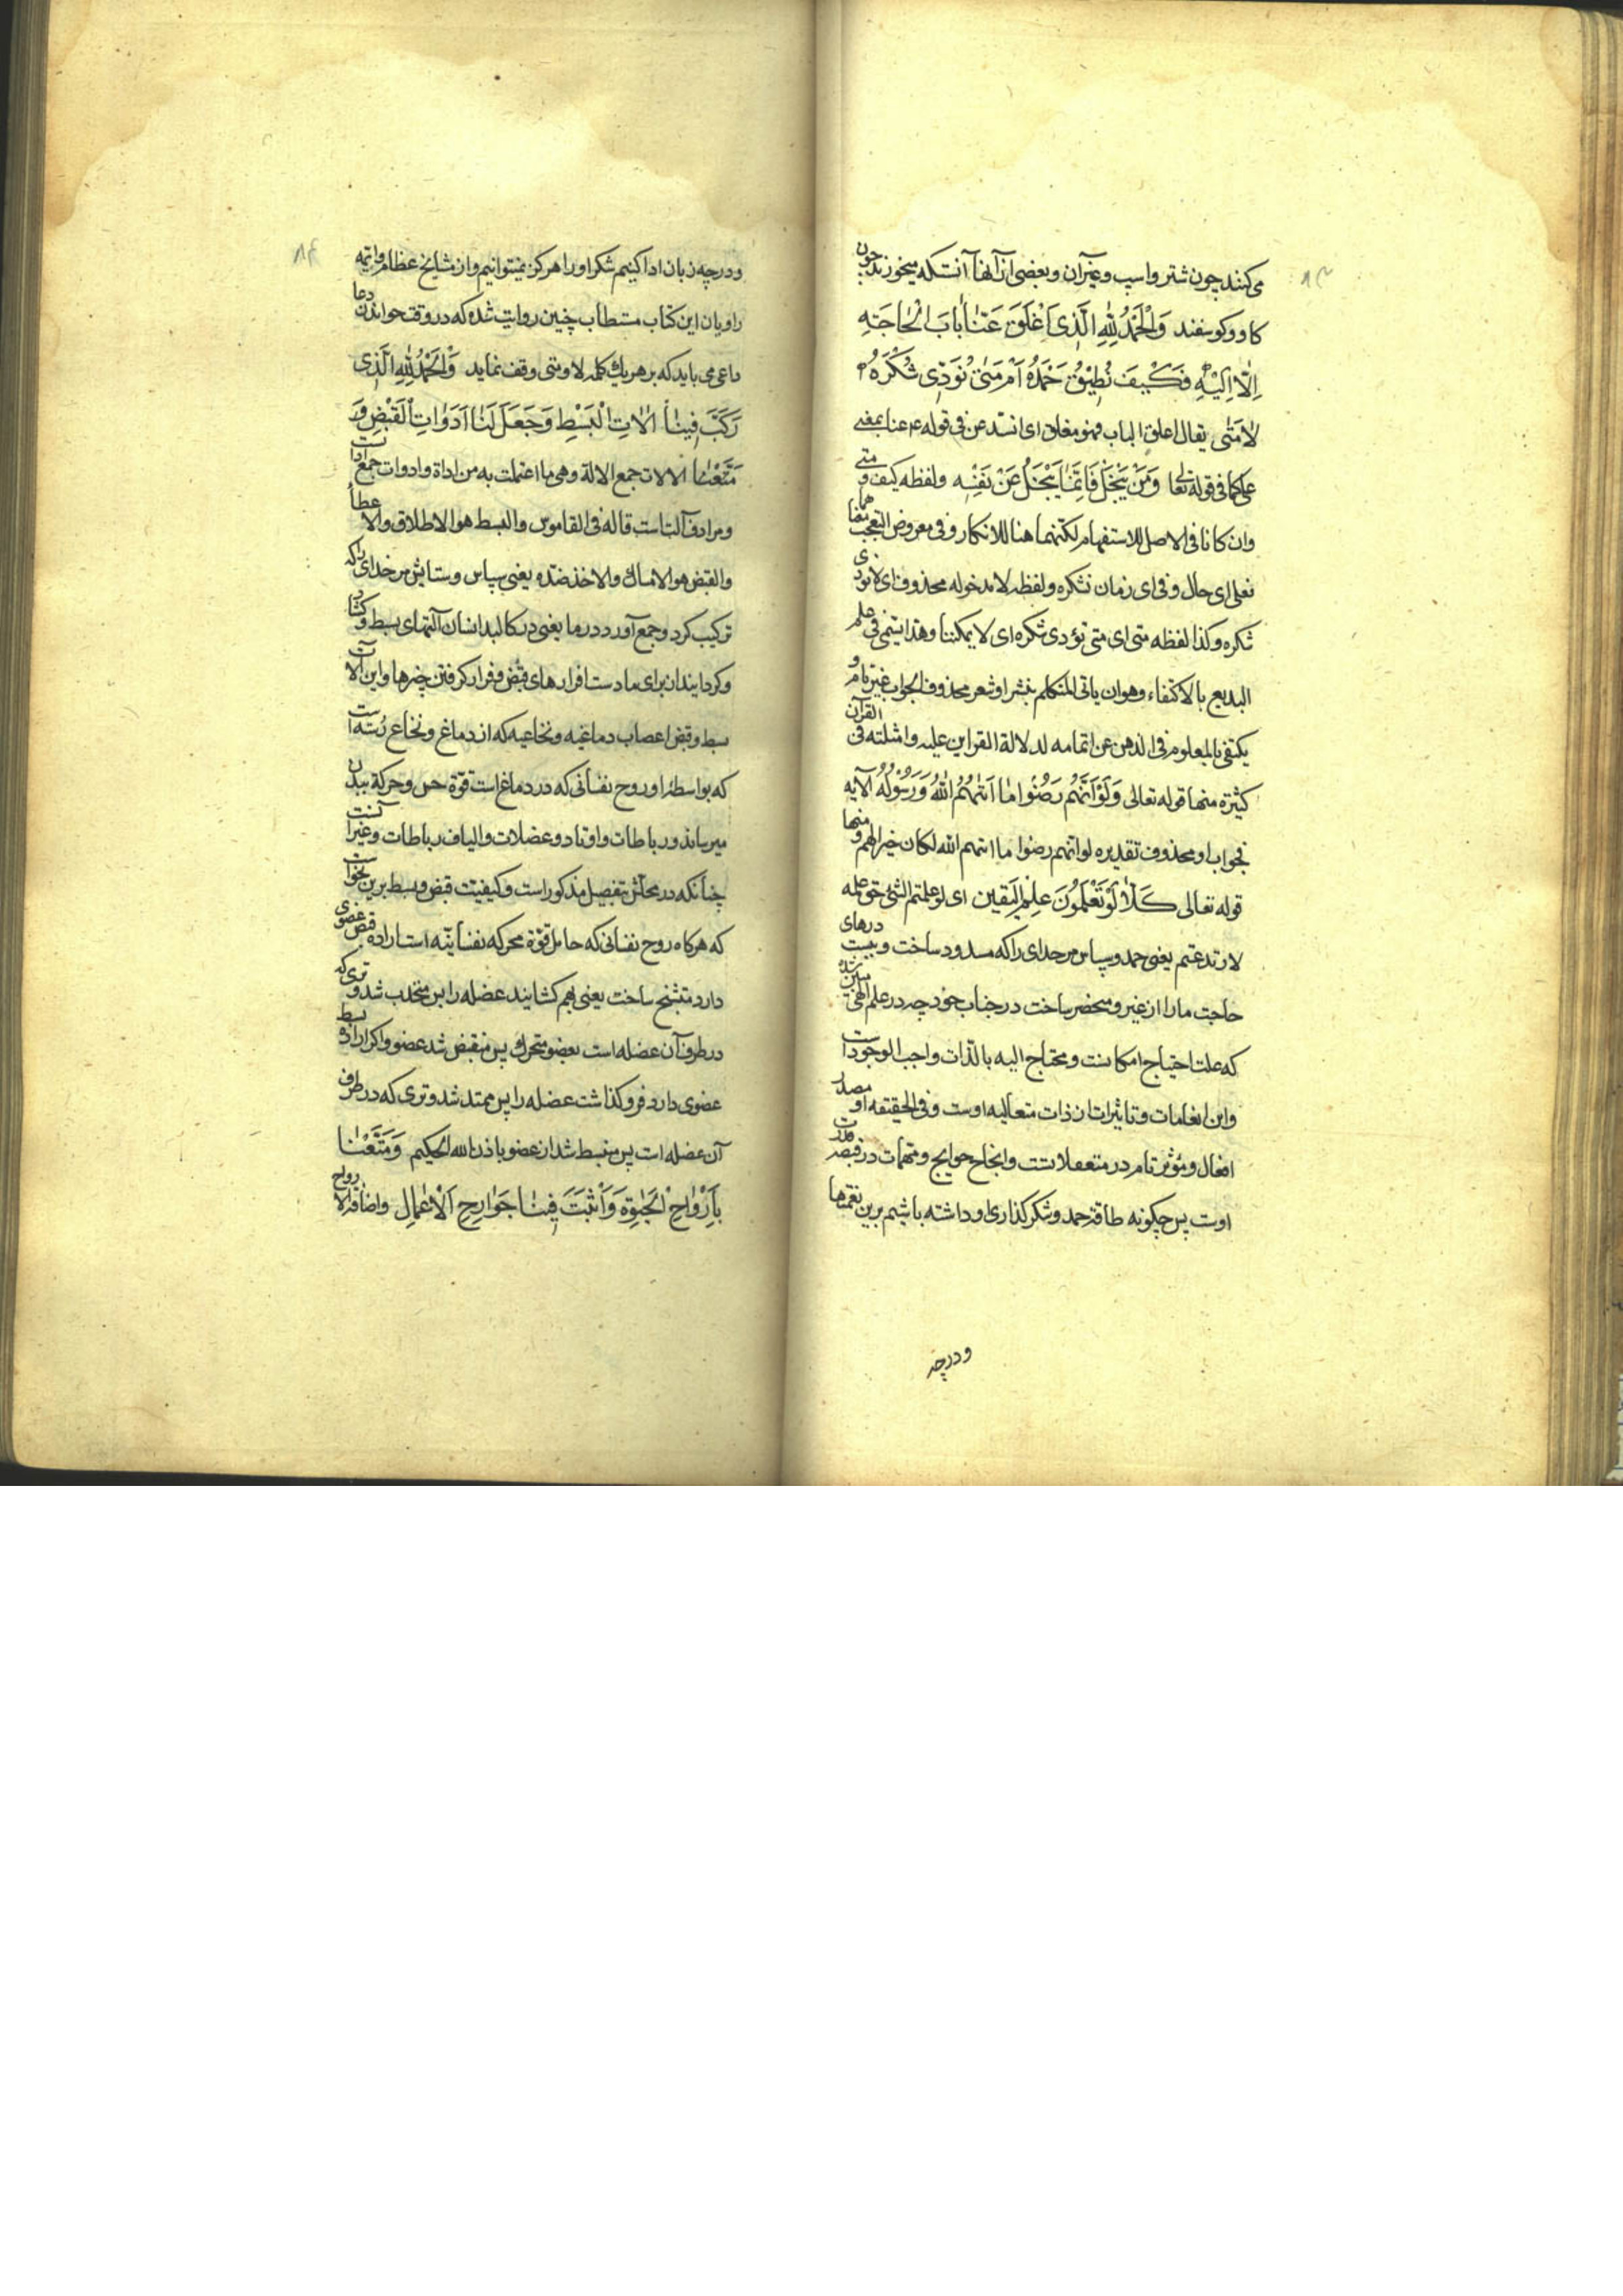 می‌کنند چون شتر و اسب و غیر آن و بعضی از آنها آنست که میخورند چون
کاو و کوسفند وَالْحَمْدُ لِلّٰهِ الَّذِی اَغْلَقَ عَنّٰا بٰابَ الْحٰاجَةِ
اِلّٰا اِلَیْهِ فَکَیْفَ نُطِیْقُ حَمْدَهُ اَمْ مَتیٰ نُؤَدّی شُکْرَهُ
لاٰ مَتٰی یقال اغلق الباب فهو مغلق ای انسد عن فی قوله ع عنا بمعنی
علی کما فی قوله تعا وَمَنْ یَبْخَلْ فَاِنَّمٰا یَبْخَلُ عَنْ نَفْسِهِ ولفظه کیف و متی
وان کانا فی الاصل للاستفهام لکنهما هنا للانکار و فی معروض التعجب
فعلی ای حال و فی ای زمان نشکره ولفظه لا مدخوله محذوف ای لا نودی
شکره وکذا لفظه متی ای متی نؤدی شکره ای لا یمکننا وهذا یسمی فی علم
البدیع بالاکتفاء وهو ان یاتی المتکلم بنثر او شعر محذوف الجواب غیر تام و
یکتفی بالمعلوم فی الذهن عن اتمامه لدلالة القراین علیه وامثلته فی القرآن
کثیرة منها قوله تعالی وَلَوْ اَنَّهُمْ رَضُوْا مٰا اَتٰهُمُ اللّٰهُ وَرَسُوْلُهُ الآیه
فجواب او محذوف تقدیره لو انهم رضوا ما اتیهم الله لکان خیرا لهم و منها
قوله تعالی کَلّٰا لَوْ تَعْلَمُونَ عِلْمَ الْیَقین ای لو علمتم الشئ حق علمه
لارتدعتم یعنی حمد و سپاس مر خدای را که مسدود ساخت و ببست درهای
حاجت ما را از غیر و منحصر ساخت در جناب خود چه در علم الهی مبین شده
که علت احتیاج امکانست و محتاج الیه بالذات واجب الوجود است
و این انعامات و تاثیرات از ذات متعالیه اوست و فی الحقیقه او مصدر
افعال و مؤثر تام در منفعلاتست و انجاح حوایج و مهمات در قبضه قدرت
اوست پس چکونه طاقة حمد و شکرکذاری او داشته باشیم برین نعمتها
ودرچه
ودرچه زبان ادا کنیم شکر او را هرکز نمیتوانیم و از مشایخ عظام وائمه
راویان این کتاب مستطاب چنین روایت شده که در وقت خواندن دعا
داعی می باید که بر هر یك کلمه لا و متی وقف نماید وَالْحَمْدُ لِلّٰهِ الَّذِی
رَکَّبَ فِینٰا اٰلاٰتِ الْبَسْطِ وَجَعَلَ لَنٰا اَدَوٰاتِ الْقَبْضِ وَ
مَتَّعْنٰا الالات جمع الالة وهی ما اعتملت به من اداة وادوات جمع اداست
و مرادف آلت است قاله فی القاموس والبسط هو الاطلاق والاعطأ
والقبض هو الامساك والاخذ ضده یعنی سپاس و ستایش مر خدای را که
ترکیب کرد و جمع آورد در ما یعنی در کالبد انسان آلتهای بسط و کشاد
و کردانیدان برای ما دست افرارهای قبض و فرا رکرفتن چیزها و این آلات
بسط و قبض اعصاب دماغیه و نخاعیه که از دماغ و نخاع رُسته است
که بواسطۀ او روح نفسانی که در دماغ است قوّة حس و حرکة ببدن
میرساند و رباطات و اوتاد و عضلات و الیاف رباطات و غیر آنست
چنانکه در محلش بتفصیل مذکور است و کیفیّت قبض و بسط برین نحواست
که هرکاه روح نفسانی که حامل قوّة محرکه نفسانیّه است اراده قبض عضوی
دارد متشنج ساخت یعنی بهم کشانید عضله را پس منجذب شد وتری که
در طرف آن عضله است بعضو متحرك پس منقبض شد عضو و اکر ارادۀ بسط
عضوی دارد فرو کذاشت عضله را پس ممتد شد وتری که در طرف
آن عضله است پس منبسط شد ان عضو باذن الله الحکیم وَ مَتَّعْنٰا
بِاَرْوٰاحِ الْحَیٰوةِ وَ اَثْبَتَ فِینٰا جَوٰارِحِ الْاَعْمٰالِ و اضافة الارواح